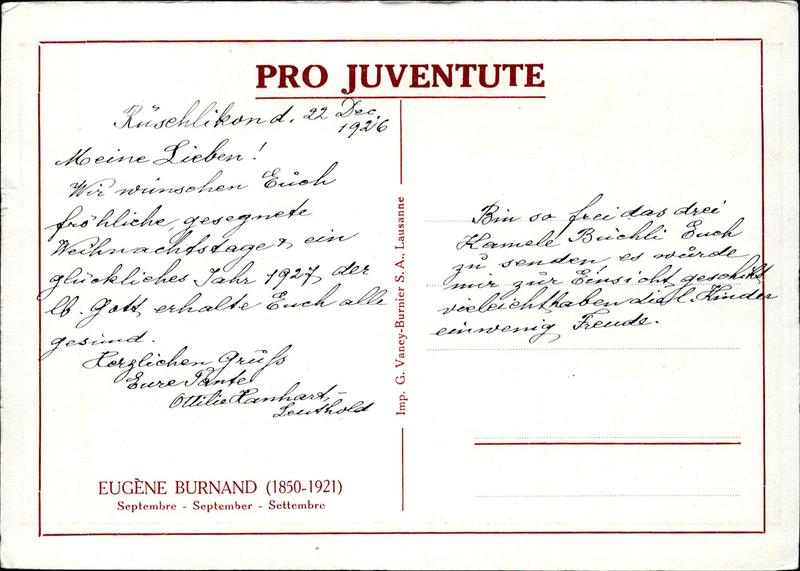 PRO JUVENTUTE
Rüschlikon d. 22 Dec.
1926
Meine Lieben!
Wir wünschen Euch
fröhliche, gesegnete
Weihnachtstage & ein
glückliches Jahr 1927, der
lb. Gott erhalte Euch alle
gesund.
Herzlichen Gruss
Eure Tante
Ottilie Hanhart-
Leuthold
EUGÈNE BURNAND (1850-1921)
Septembre - September - Settembre
Imp. G. Vaney-Burnier S. A., Lausanne
Bin so frei das drei
Kamele Büchli Euch
zu senden es würde
mir zur Einsicht geschikt
vieleicht haben die l. Kinder
einwenig Freude.